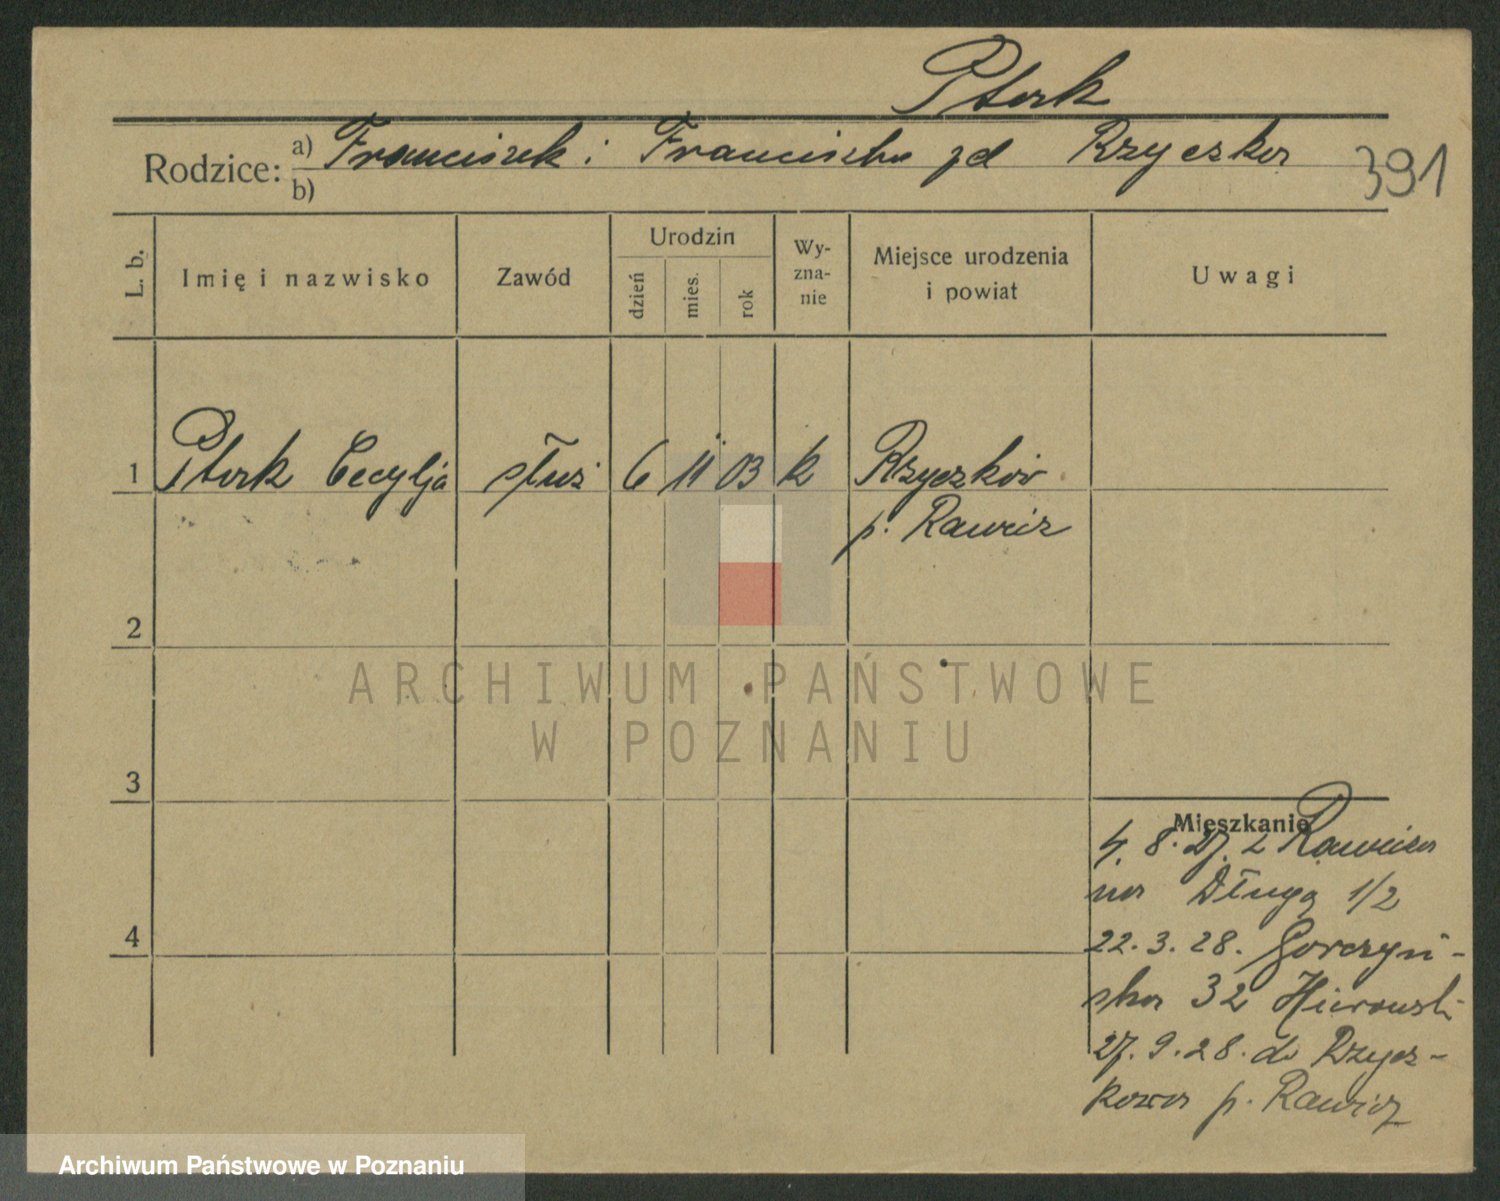 Ptork
Rodzice: a) Franciszek i Franciszka zd Rzyczka
b)
391
L. b.
Imię i nazwisko
Zawód
Urodzin
dzień
mies.
rok
Wy-
zna-
nie
Miejsce urodzenia
i powiat
Uwagi
1 Ptork Cecylja służ 6 11 03 k Rzyczków
p. Rawicz
2
3
4
Mieszkanie
4. 8. 27. z Rawicza
na Długą 1/2
22. 3. 28. Gorczyń-
ska 32
27. 9. 28. do Rzycz-
kowa p. Rawicz
ARCHIWUM PAŃSTWOWE
W POZNANIU
Archiwum Państwowe w Poznaniu